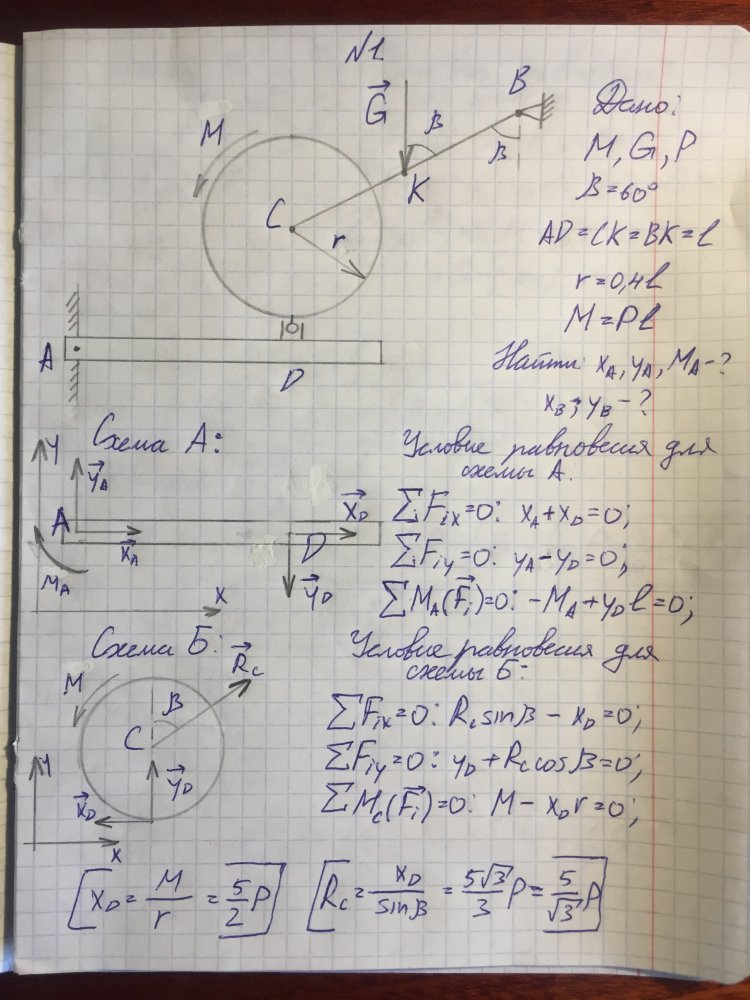 N1
B
G
M
β
β
K
C
r
A
D
Дано:
M, G, P
β=60°
AD=CK=BK=l
r=0,4l
M=Pl
Найти: xA, yA, MA-?
xB; yB-?
Схема А:
y
yA
A
xA
MA
D
xD
yD
x
Условие равновесия для
схемы А.
∑Fix=0: xA+xD=0;
∑Fiy=0: yA-yD=0;
∑MA(Fi)=0: -MA+yDl=0;
Схема Б:
Rc
M
β
C
y
yD
xD
x
Условие равновесия для
схемы Б:
∑Fix=0: Rcsinβ-xD=0;
∑Fiy=0: yD+Rccosβ=0;
∑Mc(Fi)=0: M-xDr=0;
[xD=M/r=5/2P] [Rc=xD/sinβ=5√3/3P=5/√3P]